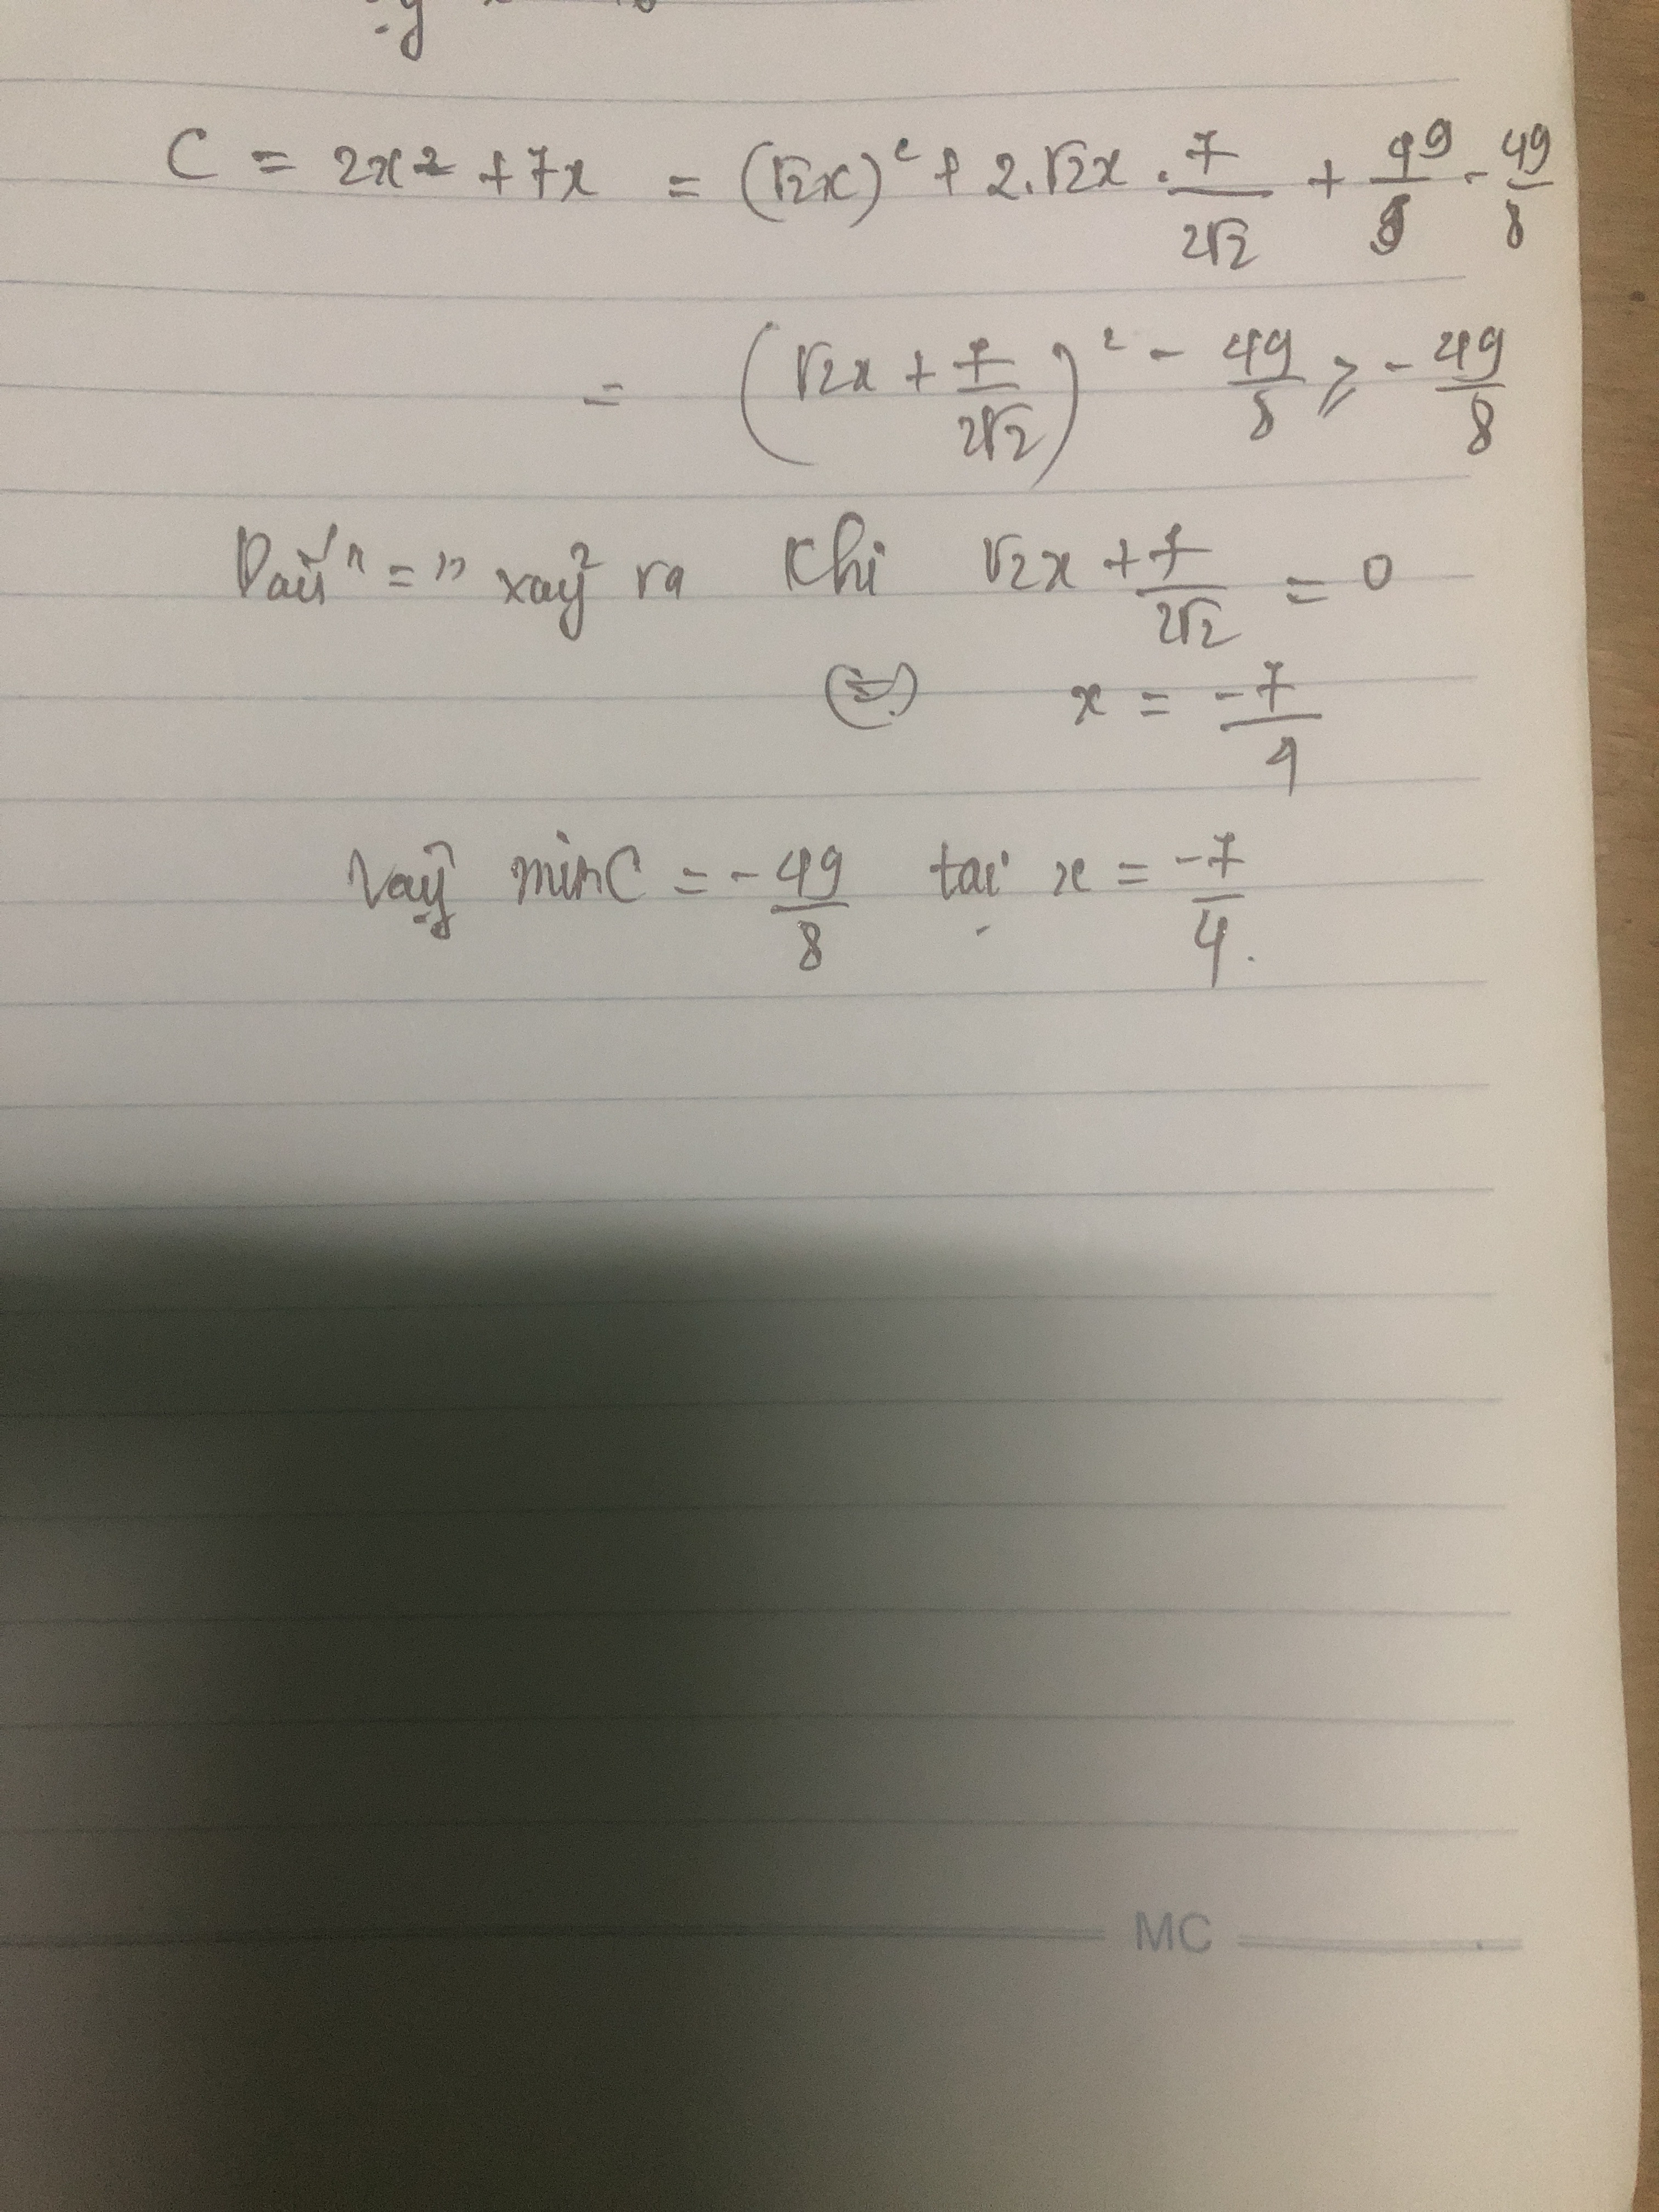 C = 2x² + 7x = (√2x)² + 2.√2x . 7/2√2 + 49/8 - 49/8
= (√2x + 7/2√2)² - 49/8 ⩾ - 49/8
Dấu "=" xảy ra khi √2x + 7/2√2 = 0
(=) x = -7/4
Vậy min C = - 49/8 tại x = -7/4.
MC